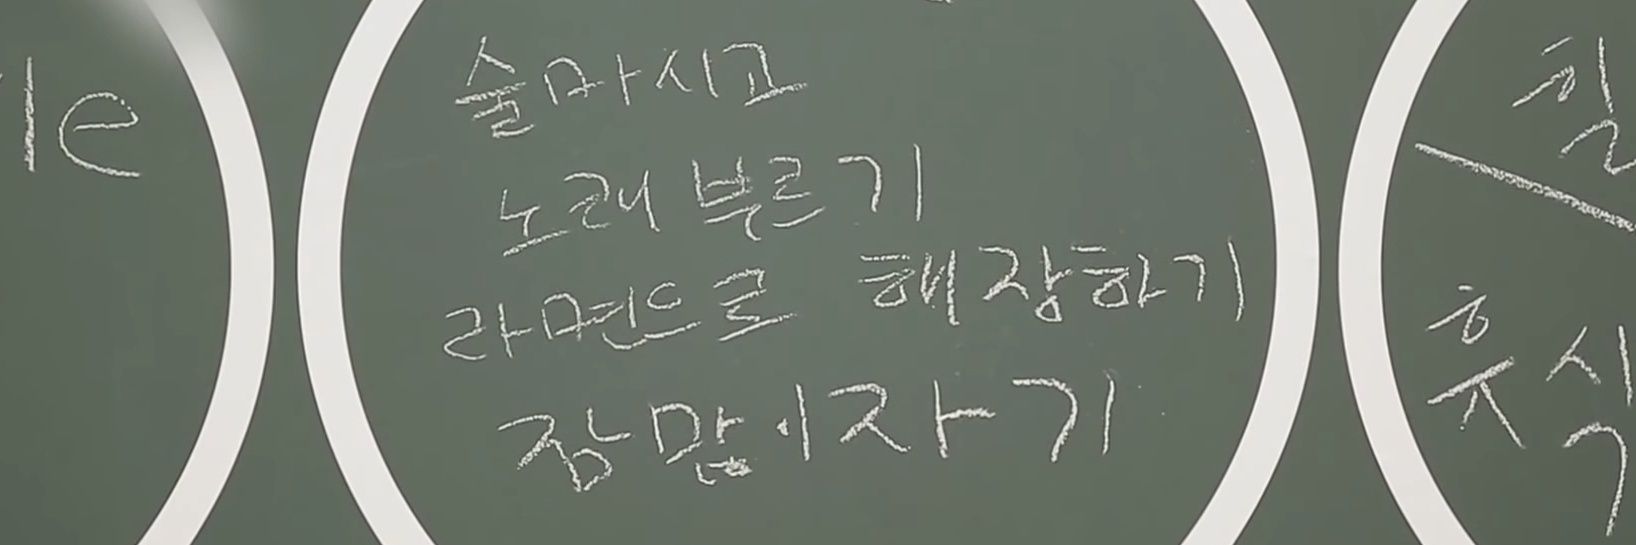 le
술마시고
노래 부르기
라면으로 해장하기
잠많이자기
칠
휴식